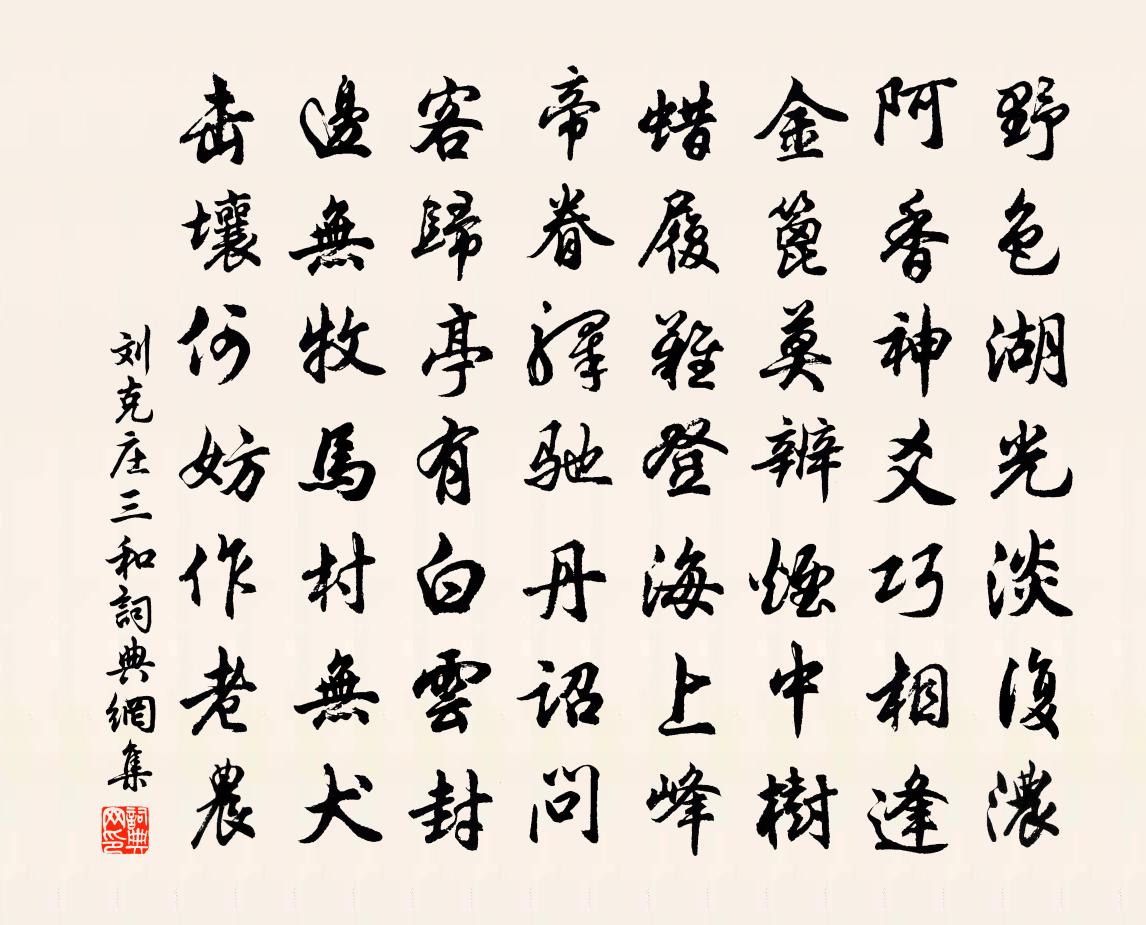 野色湖光淡復濃
阿香神爻巧相逢
金篦莫辨煙中樹
蜡履難登海上峰
帝眷驛馳丹詔問
客歸亭有白雲封
邊無牧馬村無犬
击壤何妨作老農
刘克庄三和詞典網集
詞典網印